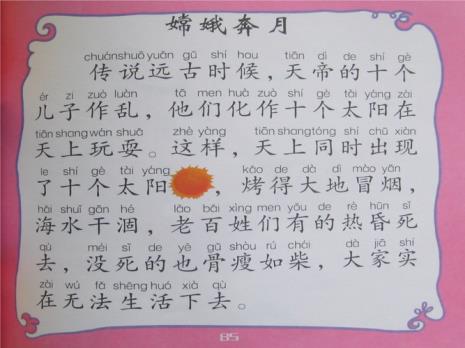 嫦娥奔月
chuánshuō yuǎn gǔ shí hou tiān dì de shí gè
传说远古时候，天帝的十个
ér zi zuò luàn tā men huà zuò shí gè tài yáng zài
儿子作乱，他们化作十个太阳在
tiān shang wán shuǎ zhè yàng tiān shang tóng shí chū xiàn
天上玩耍。这样，天上同时出现
le shí gè tài yáng kǎo de dà dì mào yān
了十个太阳，烤得大地冒烟，
hǎi shuǐ gān hé lǎo bǎi xìng men yǒu de rè hūn sǐ
海水干涸，老百姓们有的热昏死
qù méi sǐ de yě gǔ shòu rú chái dà jiā shí
去，没死的也骨瘦如柴，大家实
zài wú fǎ shēng huó xià qù
在无法生活下去。
85